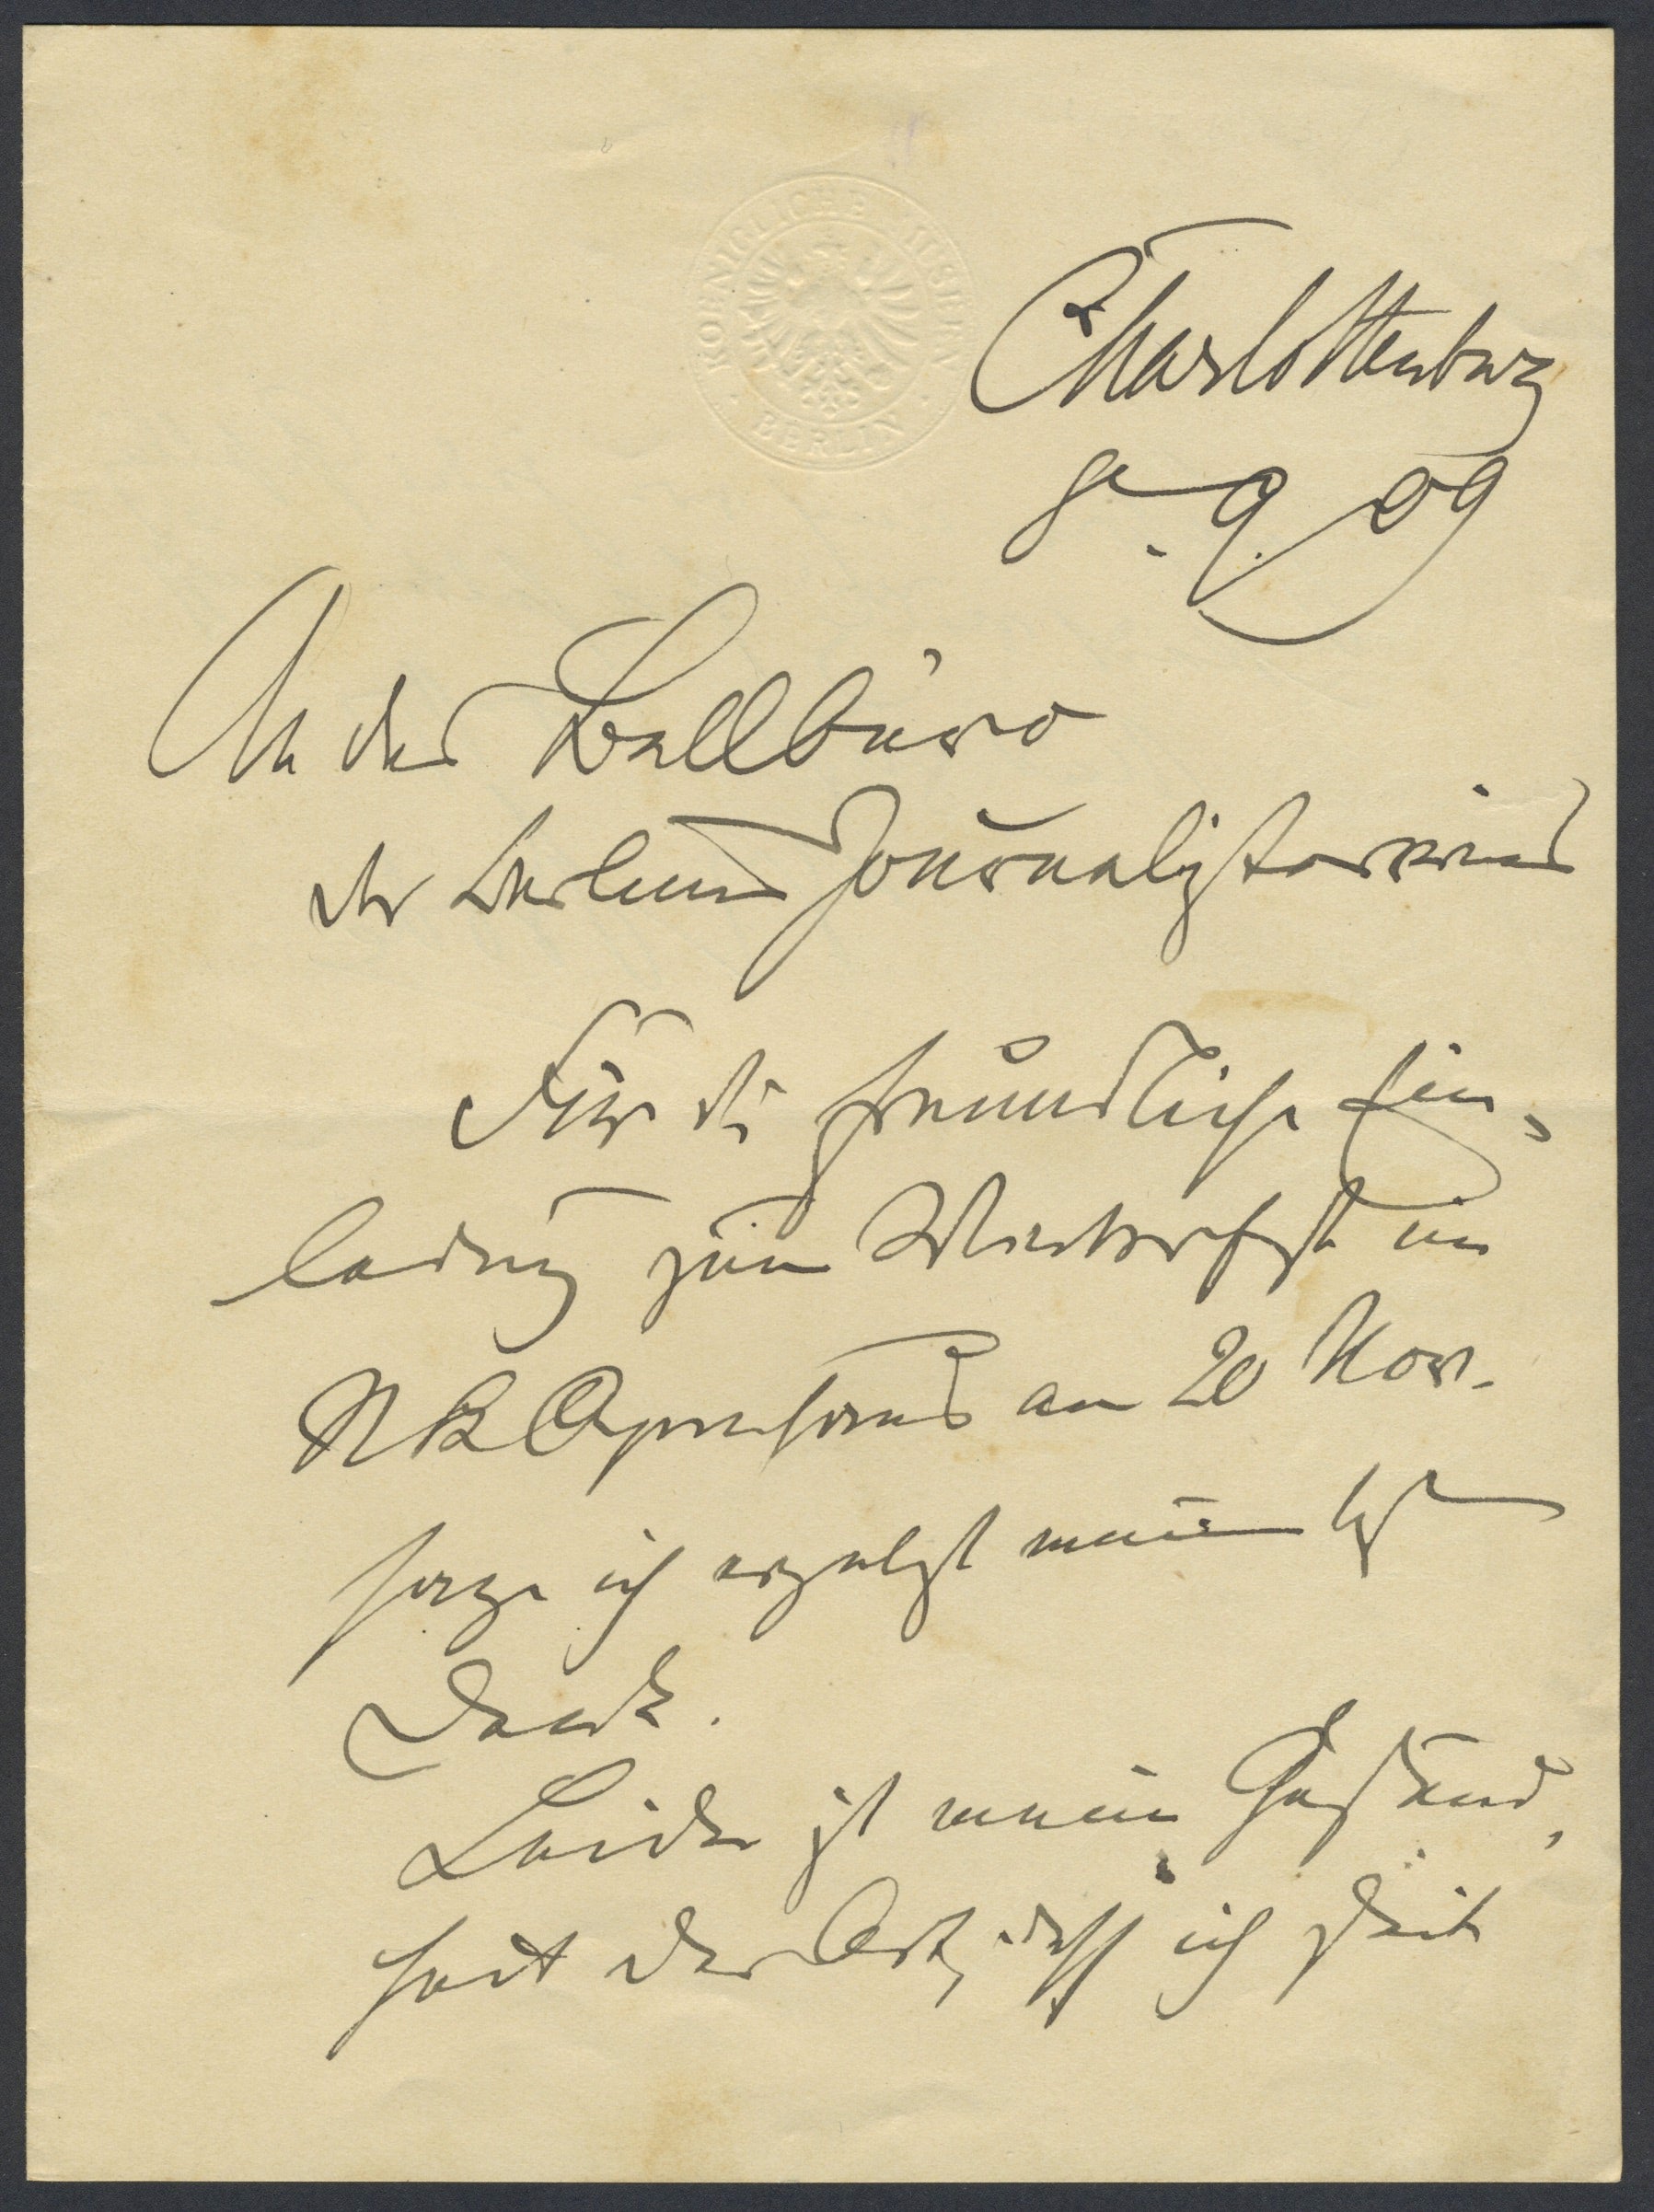 KOENIGLICHE MUSEEN
BERLIN
Charlottenburg
8. 9. 09
An das Ballbüro
des Berliner Journalistenvereins
Für die freundliche Ein-
ladung zum Winterfest im
N K Opernhaus am 20 Nov.
sage ich ergebenst meinen besten
Dank.
Leider ist meine Gesund-
heit der Art, dass ich seit